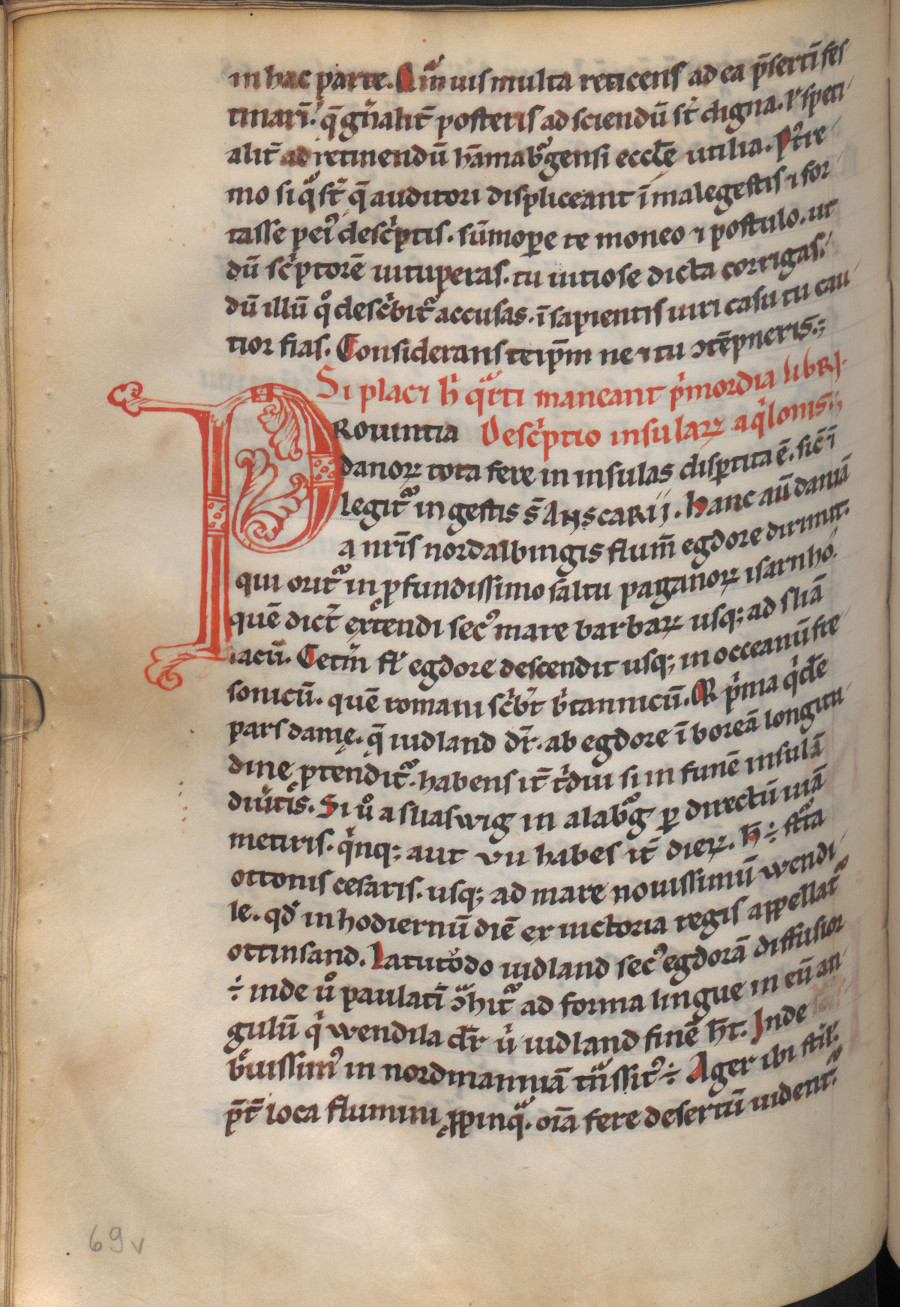 in hac parte. Qm̄uis multa reticens ad ea p̄serti̅ fes
tinari̅. q̄ gn̄alit̅ posteris ad sciendū st̅ digna. ł speti
alit̅ ad retinendū ham̄abᵍgensi eccl̅e utilia. P̄tre
mo siqᵃ st̅ q̄ auditori displiceant i̅ malegestis ⁊ for
tasse pei᾿ desc̍ptis. sūmope te moneo ⁊ postulo. ut
dū sc̍ptorē uituperas. tu uitiose dicta corrigas.
dū illū qͦ desc̍bitᵃ accusas. i̅sapientis uiri casu tu cau
tior fias. Considerans teip̅m ne ⁊ tu ↄtēpneris.;
Si placꝫ h̍ qᵃrti maneant p̍mordia libri.
PRouintia Desc̍ptio insularꝝ aq̍lonis.;
danoꝝ tota fere in insulas disptita ē. sic̅ i̅
legitᵃ in gestis s̅ Anscarij. Hanc au̅ daniā
a nr̅is nordalbingis flum̅ egdore dirimit.
qui oritᵃ in pfundissimo saltu paganoꝝ isarnho.
quē dict̅ extendi sec᾿ mare barbaꝝ usq; ad sliā
lacū. Cetm̅ fl᾿ egdore descendit usq; in occeanū fre
sonicū. quē romani sc̍bt̅ b̍tannicū. At p̍ma q̍dē
pars danię. q̄ iudland dr̅. ab egdore i̅ boreā longitu
dine ptenditᵃ. habens it̅ t̍dui si in funē insulā
diu̍tis. Si ů a sliaswig in alabᵍg p directū uiā
metiris. q̍nq; aut vii habes it̅ dieꝝ. h̅ ÷ st̅ᵃta
ottonis cesaris. usq; ad mare nouissimū wendi
le. qd̅ in hodiernū diē ex uictoria regis appellatᵃ
ottinsand. Latutͦdo iudland sec᾿ egdorā diffusior
÷ inde ů paulati̅ ↄ̅hitᵃ ad forma lingue in eū an
gulū q̍ wendila dr̅ u̍ iudland finē ht̅. Inde
b̍uissim᾿ in nordmanniā tn̅ssit᾿ ÷ Ager ibi st̍il᾿.
p̄t̅ loca flumini ppinqᵃ. om̅a fere desertū uidentᵃ
69v